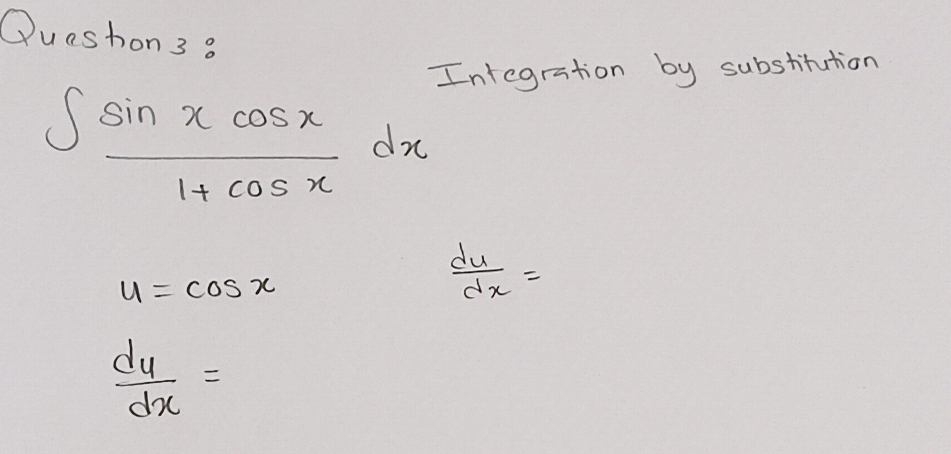 Question 3 :
Integration by substitution
∫ sin x cos x / 1 + cos x dx
u = cos x
du/dx =
du/dx =